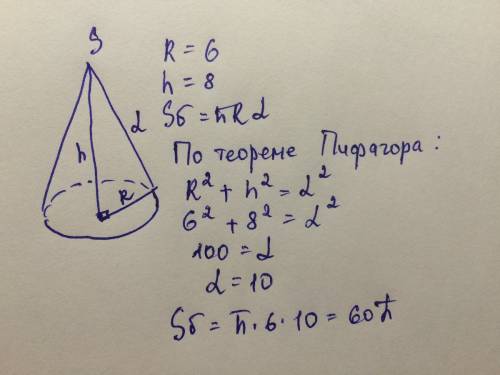 S
h
L
R
R = 6
h = 8
Sб = πRL
По теореме Пифагора:
R² + h² = L²
6² + 8² = L²
100 = L
L = 10
Sб = π·6·10 = 60π